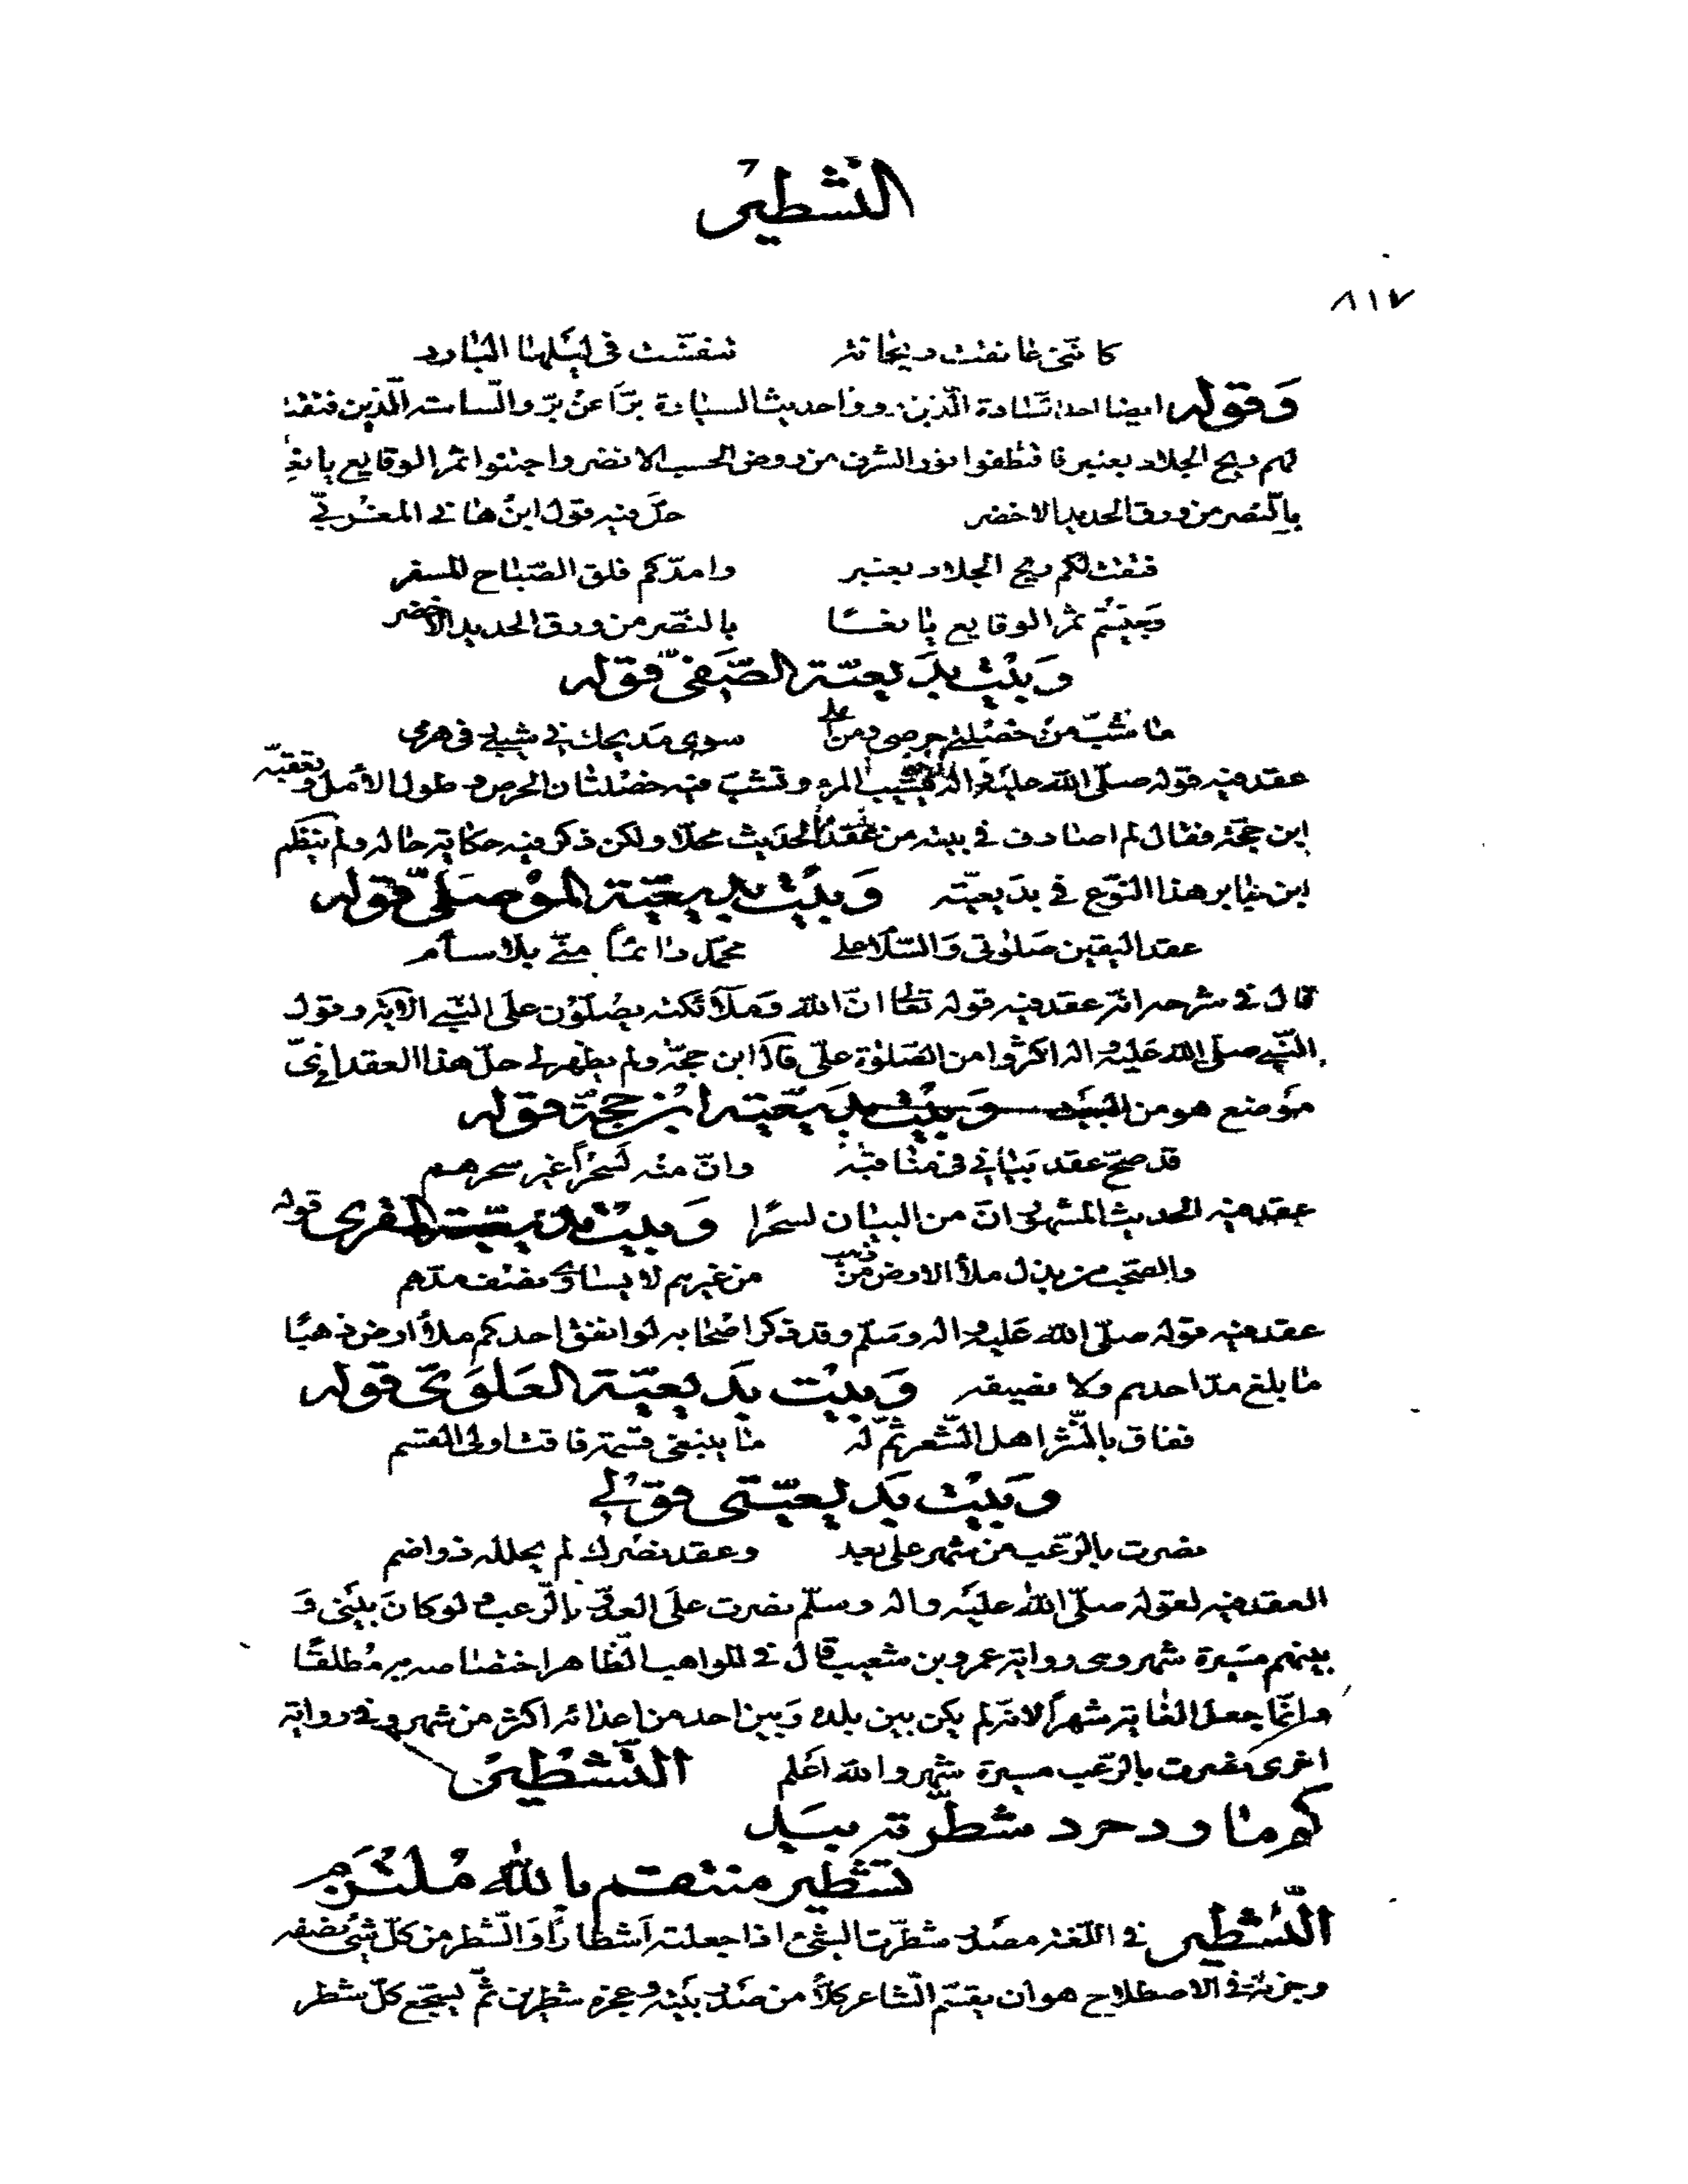 التشطير
٨١٧
كانّني غا نفثت ريحانة تنفّست في ليلها البارد
وَقوله ايضا احد السادة الّذين رووا حديث السيادة برّاً عن برّ والساسة الّذين فتقت
لهم ريح الجلاد بعنبر فاقتطفوا نور الشرف من روض الحسب الانضر واجتنوا ثمر الوقايع يانعا
بالنّصر من ورق الحديد الاخضر حلّ فيه قول ابن هانی المغربيّ
فتقت لكم ريح الجلاد بعنبر وامدّكم فلق الصّباح المسفر
وَجنيتُم ثمر الوقايع يانعًا بالنّصر من ورق الحديد الاخضر
وَبيت بدَيعيّة الصّفيّ قوله
ما شبّ من خصلتي حرصي ومن املي سوى مديحك في شيبي في هرمي
عقد فيه قوله صلّى الله عليه واله يشيب المرء وتشبّ فيه خصلتان الحرص وطول الأمل وتعقبه
ابن حجّة فقال لم اصادف في بيته من عقد الحديث محلّا ولكن ذكر فيه حكاية حاله ولم ينظم
ابن جابر هذا النّوع في بدَيعيّته وَبيْت بديعيّة الموْصلیّ قوله
عقد اليقين صَلوتي وَالسّلام على محمّد دائماً منّي بلا سأم
قال في شرحه انّه عقد فيه قوله تعالى انّ الله وَملآئكته يصُلّوُن علَى النبّي الآية وقول
النّبي صلى الله عَليه واله اكثرُوا من الصّلوٰة علیّ قال ابن حجّة ولم يظهر لي حلّ هذا العقد في ايّ
موْضع هو من البيت وَبيْت بدَيعيّة ابْن حجّة قوله
قد صحّ عقد بَياني في مناقبه وانّ منه لَسحْراً غير سحرهم
عقد فيه الحديث المشهور انّ من البيان لسحْرا وَبيْت بديعيّة المقري قوله
والصّحب من يبذل ملأ الارض من ذهب من غيرهم لا يساوي نصف مدّهم
عقد فيه قوله صلّى الله عَليه واله وسَلّم وقد ذكر اصْحابه لو انفق احدكم ملأ ارض ذهبًا
ما بلغ مدّ احدهم ولا نصيفه وَبيْت بدَيعيّة العَلوَيّ قوله
ففاق بالنّثر اهل الشّعر ثمّ لهُ ما ينبغي قسمة فاقت اولى القسم
وَبَيْت بدَيعيّتي قوْلي
نصرت بالرّعب من شهر على بعد وعقد نصرك لم يحلله ذو اضم
العقد فيه لقوله صلّى الله عليَه واله وسلّم نصرت علَى العدوّ بالرّعب ولو كانَ بيَني وَ
بينهم مسَيرة شهر وهي رواية عمرو بن شعيب قال في المواهب الظّاهر اختصاصه به مُطلقًا
وانّما جعل الغاية شهراً لانّه لم يكن بين بلده وَبين احد من اعدائه اكثر من شهر وفي رواية
اخرى نصرت بالرّعب مسيرة شهر والله اعَلم التّشْطيْر
كم ماردٍ حردٍ شطّرته بيَدٍ
تشْطير منتقم بالله مُلتزم
التّشْطير في اللّغة مصَدر شطّرت الشئ اذا جعلته اَشطاراً وَالشّطر من كلّ شئ نصفه
وجزئه وفي الاصطلاح هو ان يقسّم الشّاعر كلاًّ من صَدر بَيته وعجزه شطرين ثمّ يسجّع كلّ شطر